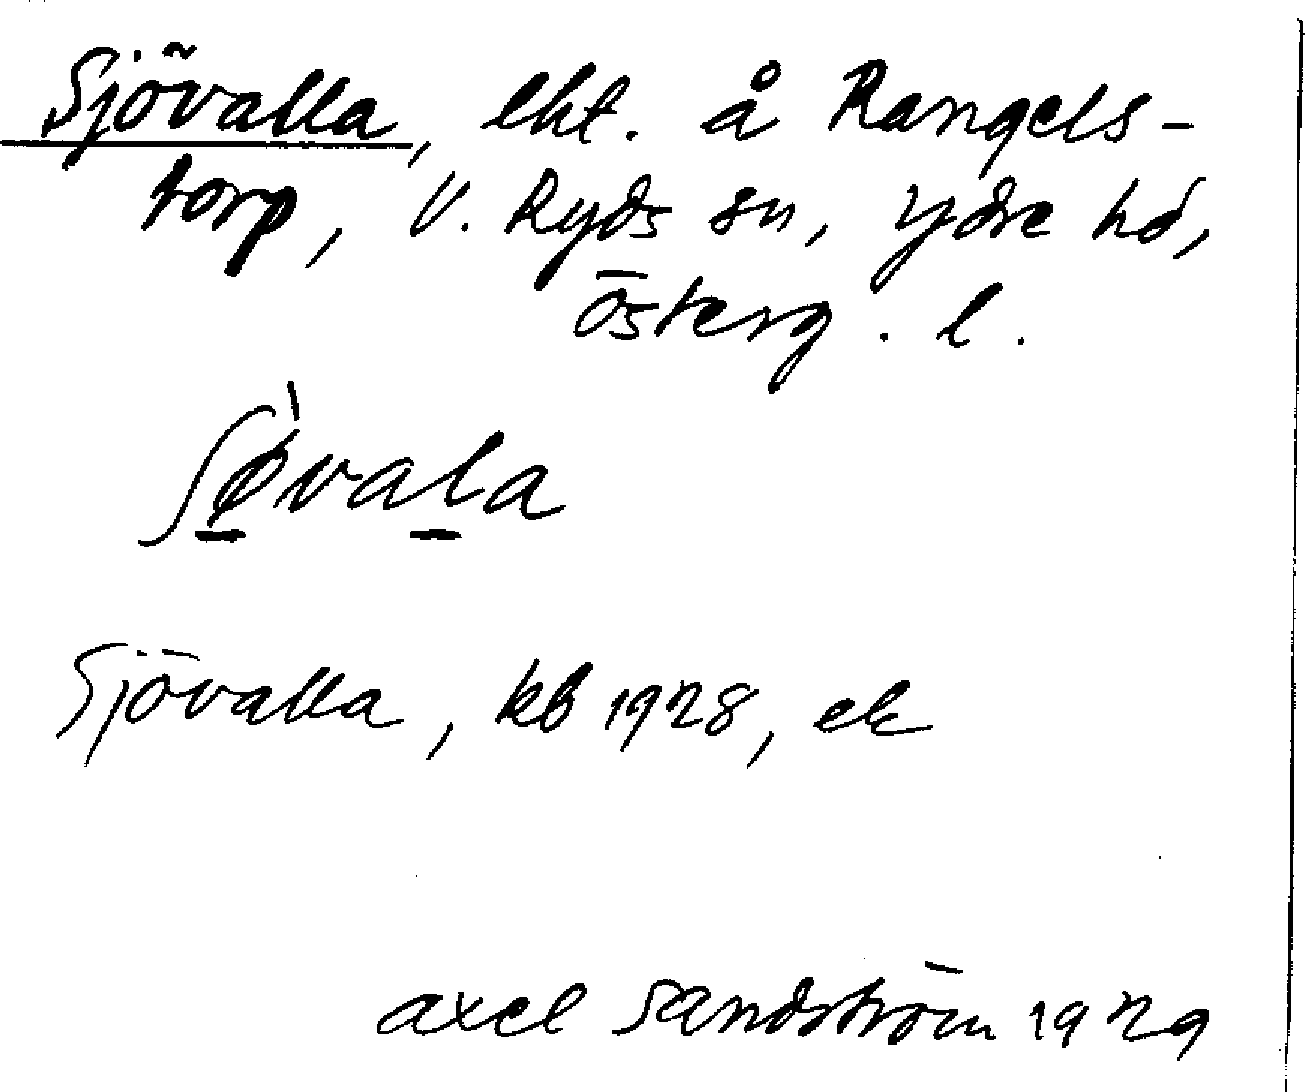 Sjövalla, lht. å Rangels-
torp, V. Ryds sn, Ydre hd,
Österg. l.
ʃø̀vala
Sjövalla, kb 1928, ek
Axel Sandström 1929